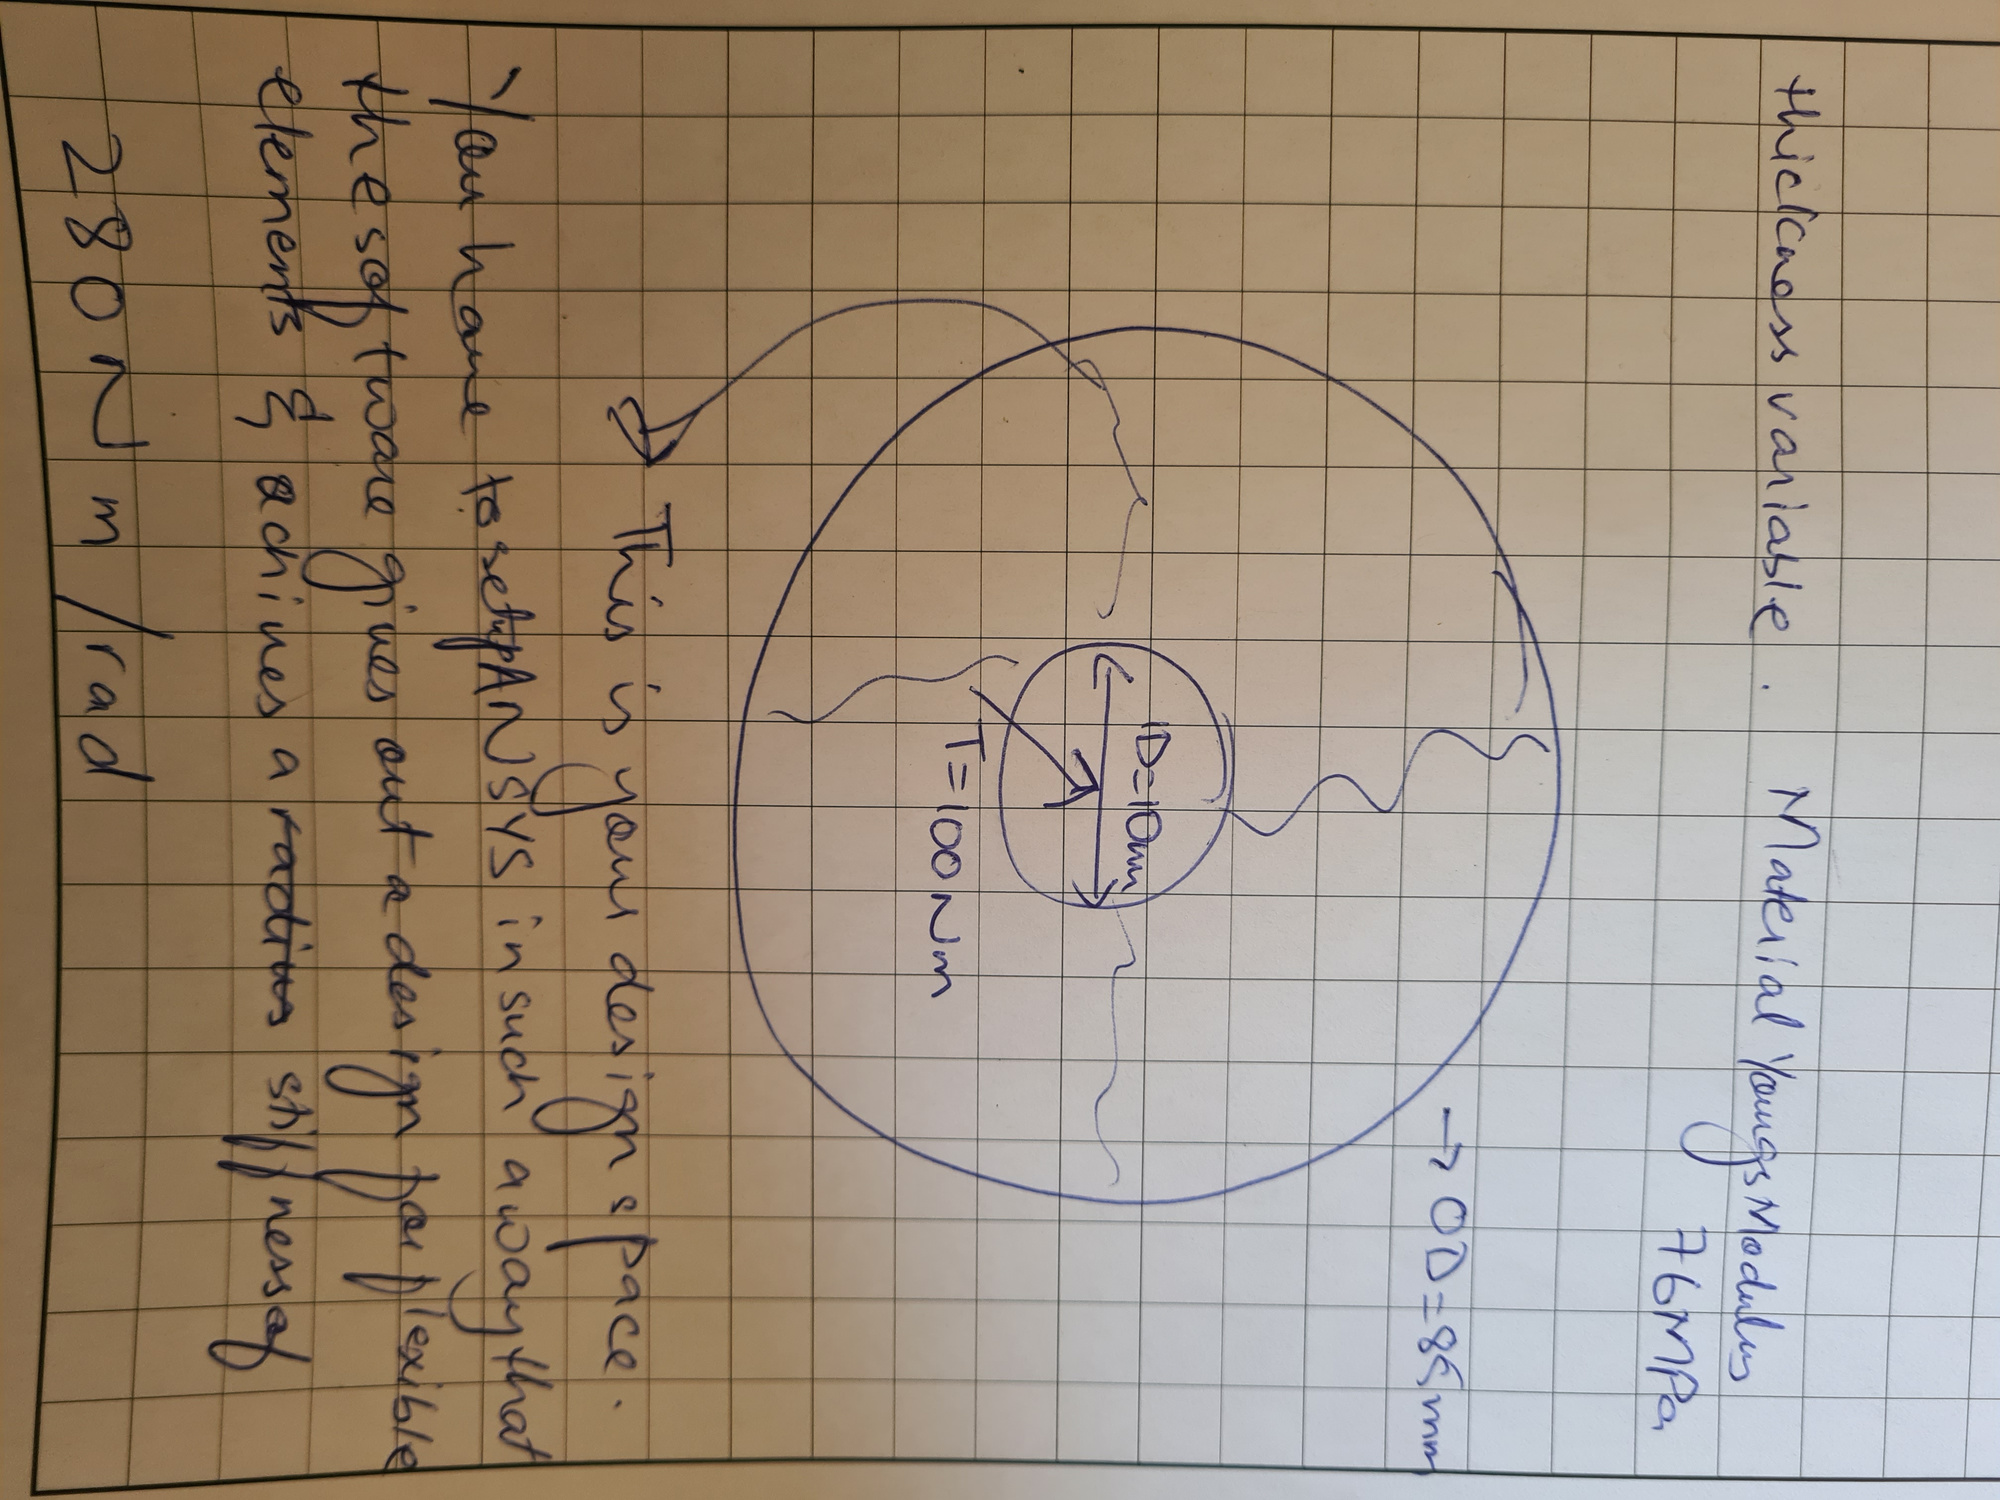 thickness variable. Material Youngs Modulus
76MPa
→ OD=85mm
ID=10mm
T=100Nm
This is your design space.
You have to setup ANSYS in such a way that
the software gives out a design for flexible
elements & achives a radius stiffness of
280Nm/rad